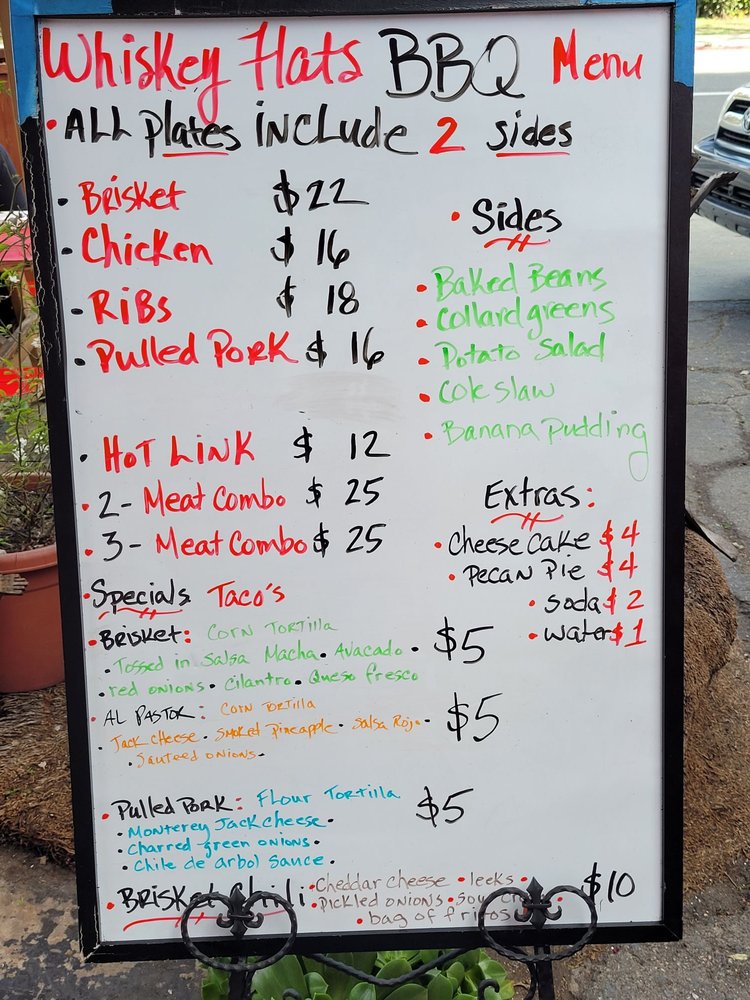 Whiskey Flats BBQ Menu
• ALL plates include 2 sides
• Brisket $22
• Chicken $16
• Ribs $18
• Pulled Pork $16
• Hot Link $12
• 2- Meat Combo $25
• 3- Meat Combo $25
• Sides
• Baked Beans
• Collard greens
• Potato Salad
• Cole slaw
• Banana Pudding
Extras:
• Cheese cake $4
• Pecan Pie $4
• soda $2
• water $1
• Specials Taco's
• Brisket: Corn Tortilla $5
• Tossed in Salsa Macha • Avacado •
• red onions • Cilantro • Queso fresco
• AL PASTOR: Corn Tortilla $5
• Jack cheese • Smoked Pineapple • Salsa Rojo •
• Sauteed onions •
• Pulled Pork: Flour Tortilla $5
• Monterey Jack cheese •
• Charred green onions •
• Chile de arbol sauce •
• Brisket Chili • Cheddar cheese • leeks • $10
• Pickled onions •
• bag of fritos